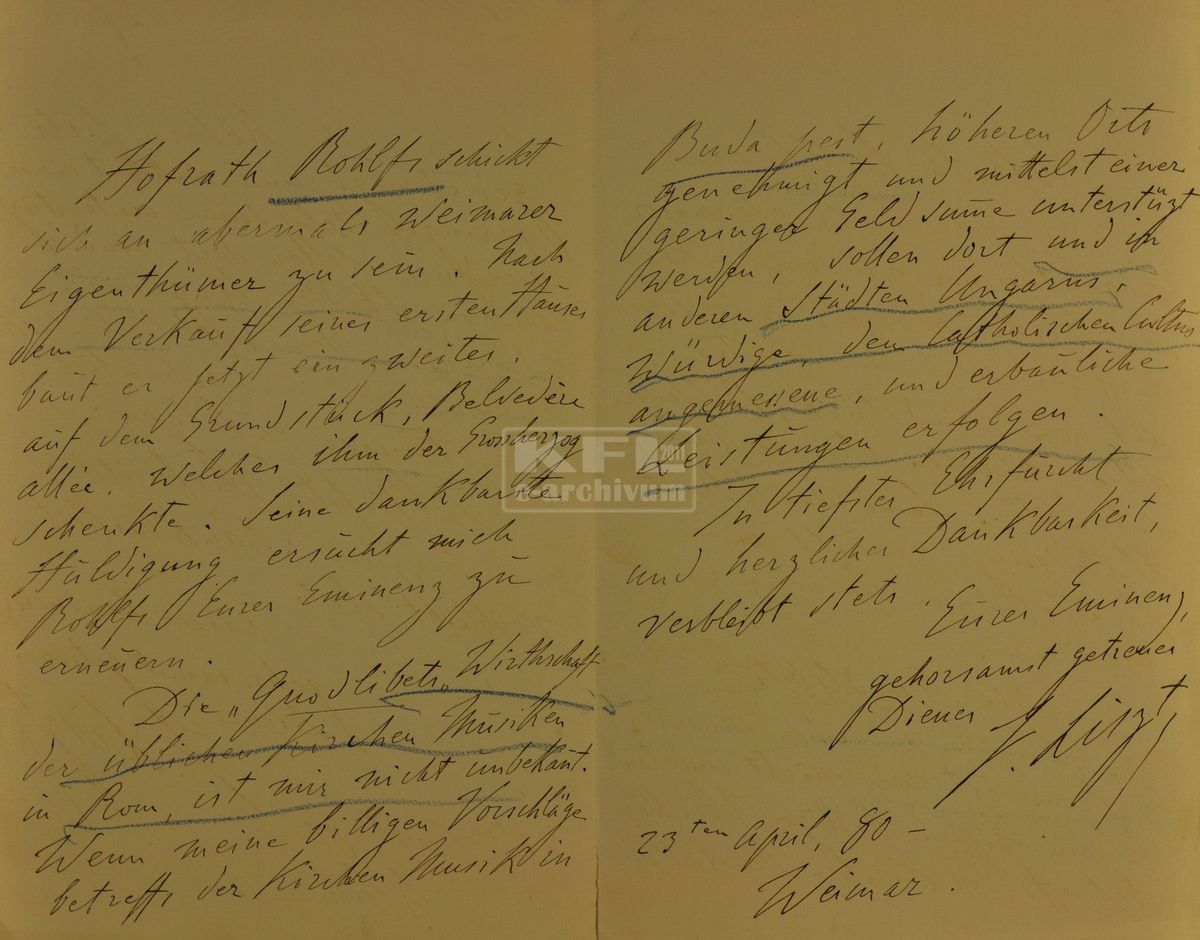 Hofrath Rohlfs schickt
sich an abermals Weimarer
Eigenthümer zu sein. Nach
dem Verkauf seines ersten Hauses
baut er jetzt ein zweites,
auf dem Grundstück, Belvedère
allée, welches ihm der Grossherzog
schenkte. Seine dankbarste
Huldigung ersucht mich
Rohlfs Eurer Eminenz zu
erneuern.
Die „Quodlibets„ Wirthschaft
der üblichen Kirchen Musiken
in Rom, ist mir nicht unbekañt.
Wenn meine billigen Vorschläge
betreffs der Kirchen Musik in
Buda pest, höheren Orts
genehmigt und mittelst einer
geringen Geld sum̃e unterstüzt
werden, sollen dort und in
anderen Städten Ungarns,
Würdige, dem Catholischen Cultus
angemessene, und erbauliche
Leistungen erfolgen.
In tiefster Ehrfurcht
und herzlicher Dankbarkeit,
verbleibt stets, Eurer Eminenz,
gehorsamst getreuer
Diener F. Liszt
23ten April, 80 –
Weimar.
KFL 2011
e-archivum